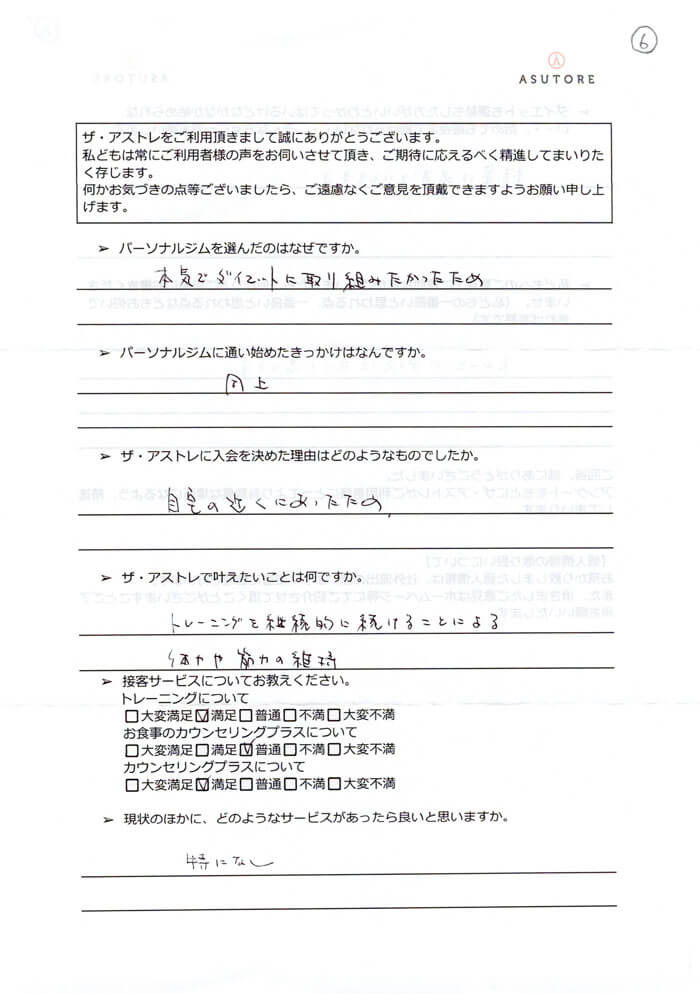 ⑥
ASUTORE
ザ・アストレをご利用頂きまして誠にありがとうございます。
私どもは常にご利用者様の声をお伺いさせて頂き、ご期待に応えるべく精進してまいりた
く存じます。
何かお気づきの点等ございましたら、ご遠慮なくご意見を頂戴できますようお願い申し上
げます。
➢ パーソナルジムを選んだのはなぜですか。
本気でダイエットに取り組みたかったため
➢ パーソナルジムに通い始めたきっかけはなんですか。
同上
➢ ザ・アストレに入会を決めた理由はどのようなものでしたか。
自宅の近くにあったため
➢ ザ・アストレで叶えたいことは何ですか。
トレーニングを継続的に続けることによる
体力や筋力の維持
➢ 接客サービスについてお教えください。
トレーニングについて
□大変満足☑満足□普通□不満□大変不満
お食事のカウンセリングプラスについて
□大変満足□満足☑普通□不満□大変不満
カウンセリングプラスについて
□大変満足☑満足□普通□不満□大変不満
➢ 現状のほかに、どのようなサービスがあったら良いと思いますか。
特になし